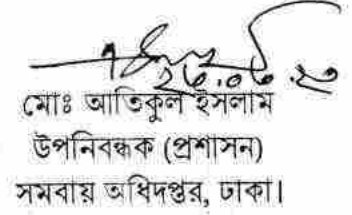 ২৫.০৬.২৩
মোঃ আতিকুল ইসলাম
উপনিবন্ধক (প্রশাসন)
সমবায় অধিদপ্তর, ঢাকা।